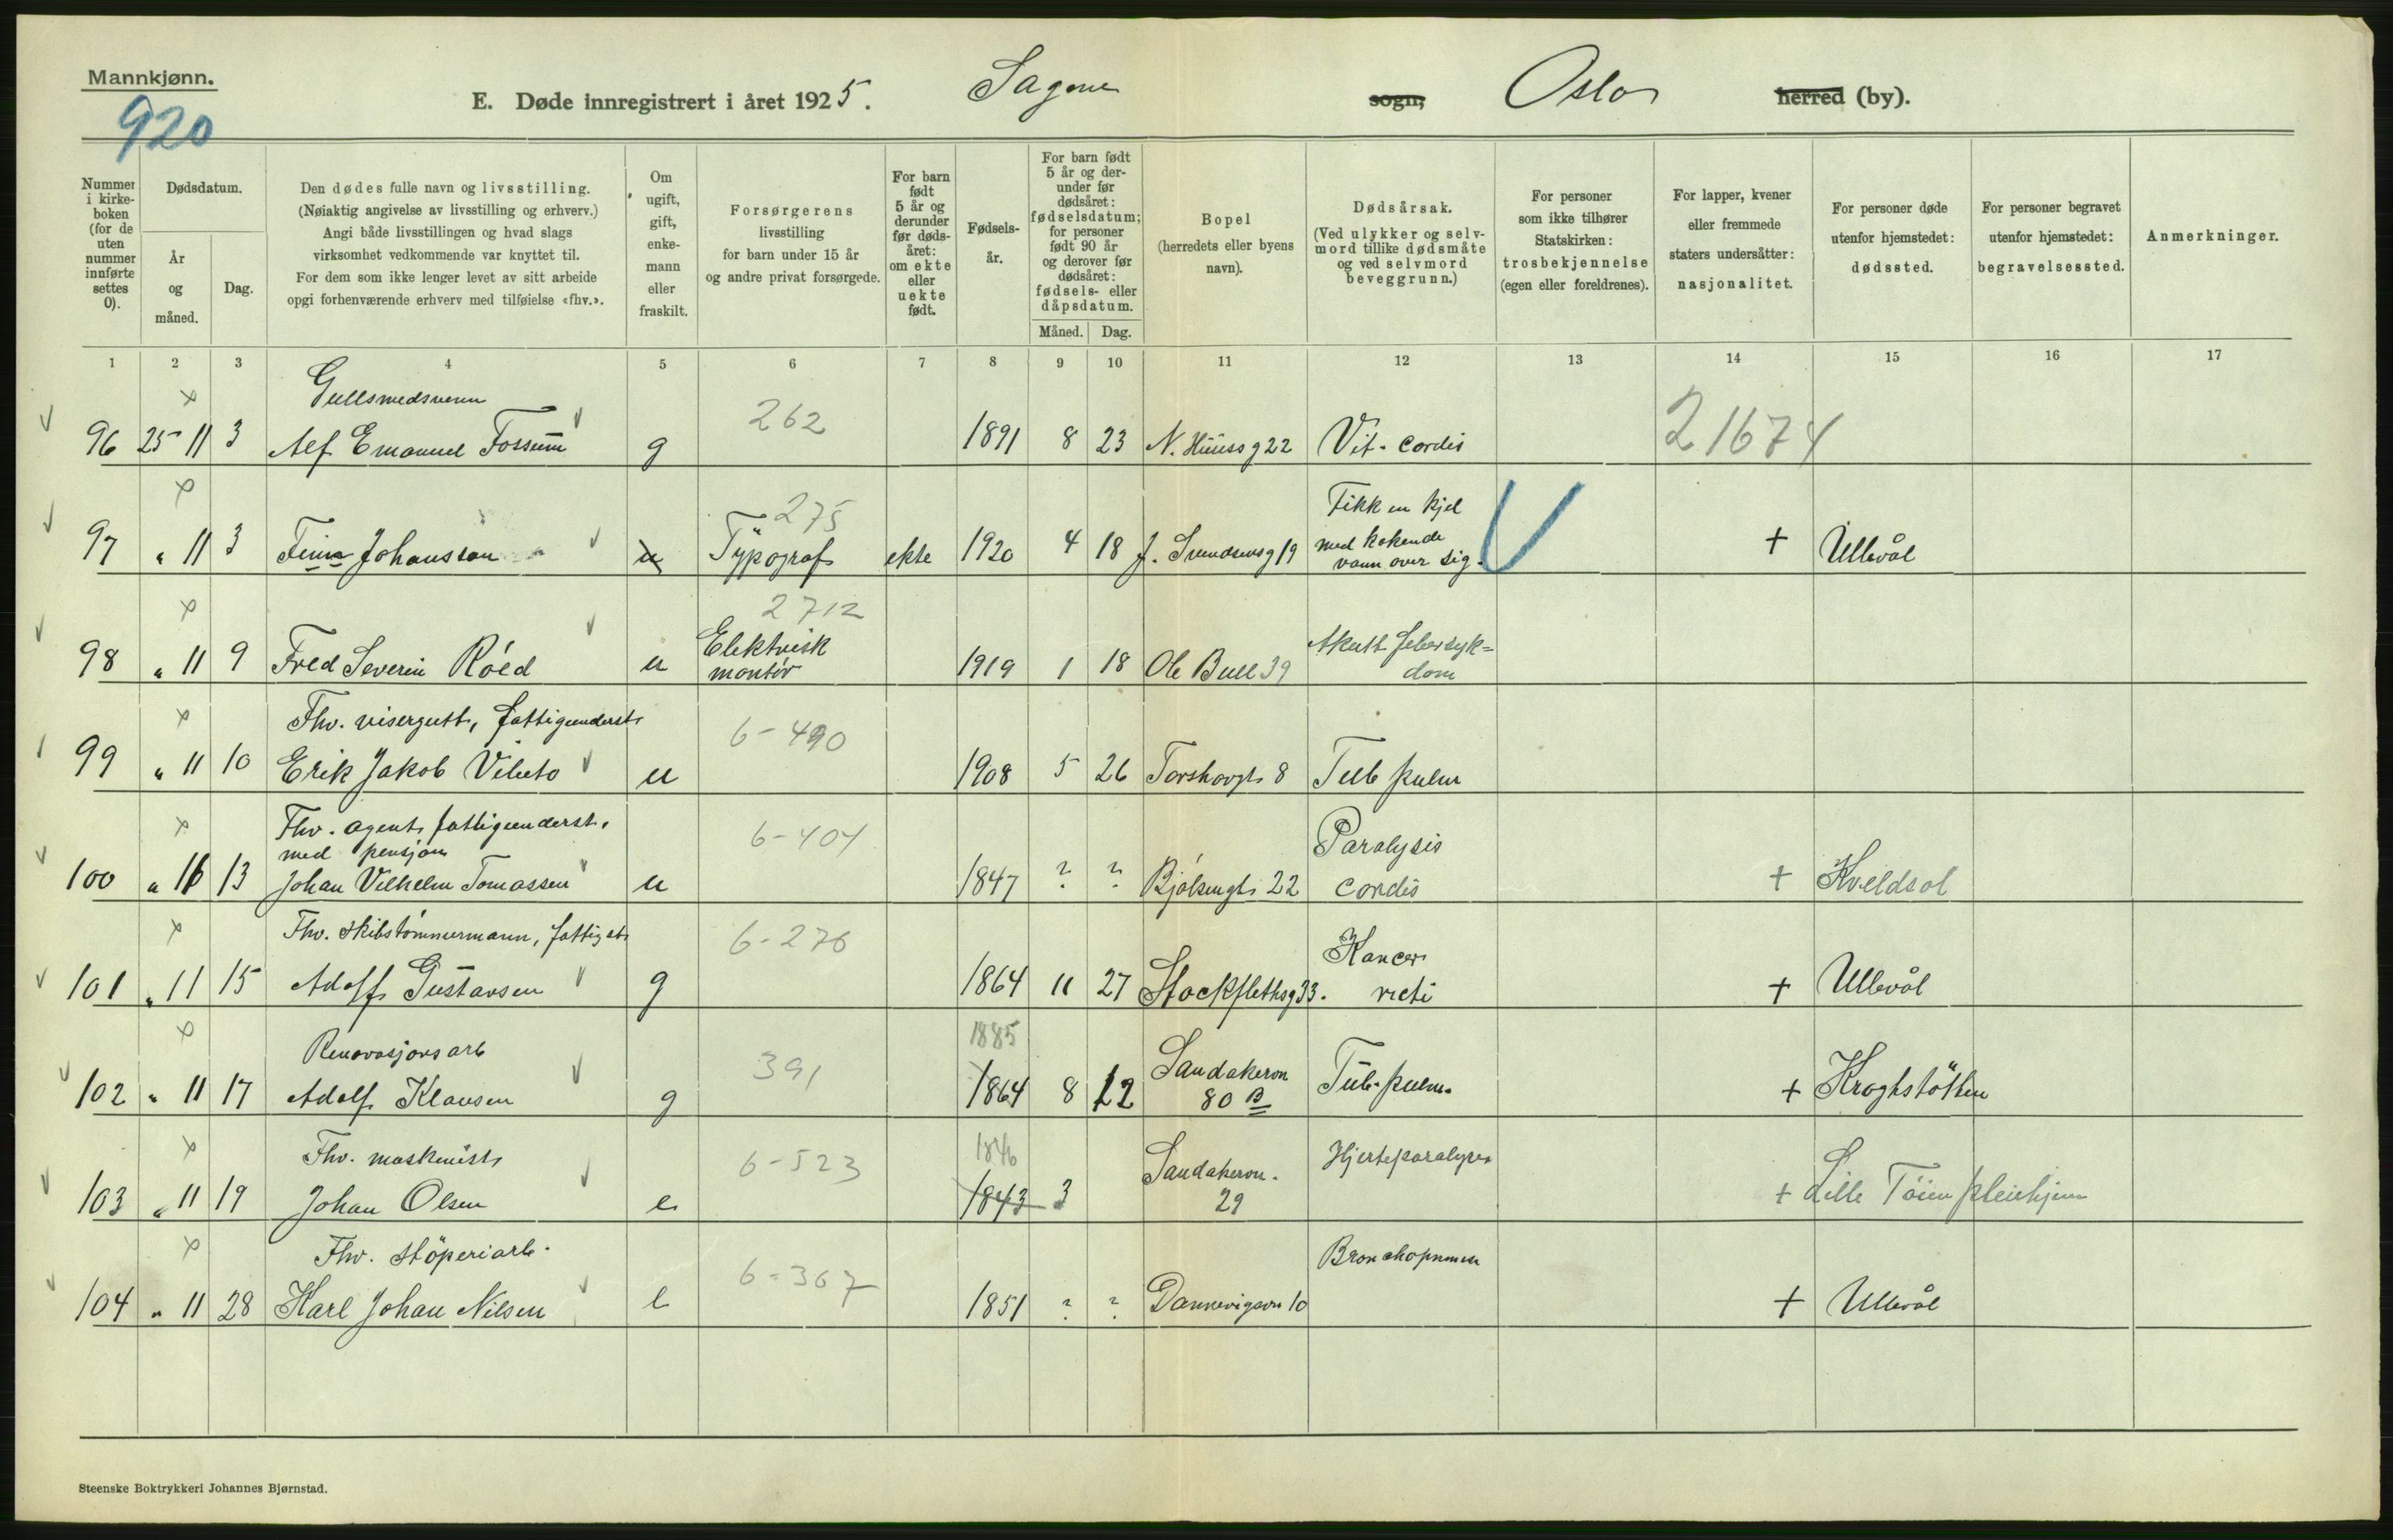 Mannkjønn.
920
E. Døde innregistrert i året 1925. Sagene sogn, Oslo herred (by).
Nummer i kirkeboken (for de uten nummer innførte settes 0).
Dødsdatum.
År og måned.
Dag.
Den dødes fulle navn og livsstilling.
(Nøiaktig angivelse av livsstilling og erhverv.)
Angi både livsstillingen og hvad slags
virksomhet vedkommende var knyttet til.
For dem som ikke lenger levet av sitt arbeide
opgi forhenværende erhverv med tilføielse «fhv.».
Om ugift, gift, enkemann eller fraskilt.
Forsørgerens
livsstilling
for barn under 15 år
og andre privat forsørgede.
For barn født 5 år og derunder før dødsåret: om ekte eller uekte født.
Fødselsår.
For barn født 5 år og derunder før dødsåret: fødselsdatum; for personer født 90 år og derover før dødsåret: fødsels- eller dåpsdatum.
Måned. Dag.
Bopel
(herredets eller byens
navn).
Dødsårsak.
(Ved ulykker og selvmord tillike dødsmåte og ved selvmord beveggrunn.)
For personer
som ikke tilhører
Statskirken:
trosbekjennelse
(egen eller foreldrenes).
For lapper, kvener
eller fremmede
staters undersåtter:
nasjonalitet.
For personer døde
utenfor hjemstedet:
dødssted.
For personer begravet
utenfor hjemstedet:
begravelsessted.
Anmerkninger.
1 2 3 4 5 6 7 8 9 10 11 12 13 14 15 16 17
Gullsmedsvenn
96 25 11 3 Alf Emanuel Fossum g 262 1891 8 23 N. Huussg 22 Vit. cordis 21674
97 " 11 3 Finn Johansson u 275 Typograf ekte 1920 4 18 J. Svendsensg 19 Fikk en kjel
med kokende
vann over sig. + Ullevål
98 " 11 9 Fred Severin Röed u 2712 Elektrisk
montör 1919 1 18 Ole Bull 39 Akutt febersyk=
dom
Fhv. visergutt, fattigunderst.
99 " 11 10 Erik Jakob u 6-490 1908 5 26 Torshovgt. 8 Tub pulm
Fhv. agent, fattigunderst.
med pensjon
100 " 11 13 Johan Vilhelm Tomassen u 6-404 1847 ? ? Bjölsengt. 22 Paralysis
cordis + Kveldsol
Fhv. skibstömmermann, fattigst.
101 " 11 15 Adolf Gustavsen g 6-276 1864 11 27 Stockflethsg 33. Kancer
recti + Ullevål
Renovasjonsarb
102 " 11 17 Adolf Klausen g 391 1885
1864 8 12 Sandakervn
80 B Tub. pulm. + Kroghstötten
Fhv. maskinist
103 " 11 19 Johan Olsen e 6-523 1846
1843 3 Sandakervn.
29 Hjerteparalyse + Lille Töien pleiehjem
Fhv. stöperiarb.
104 " 11 28 Karl Johan Nilsen e 6-367 1851 ? ? Dannevigsvn 10 Bronchopneum + Ullevål
Steenske Boktrykkeri Johannes Bjørnstad.